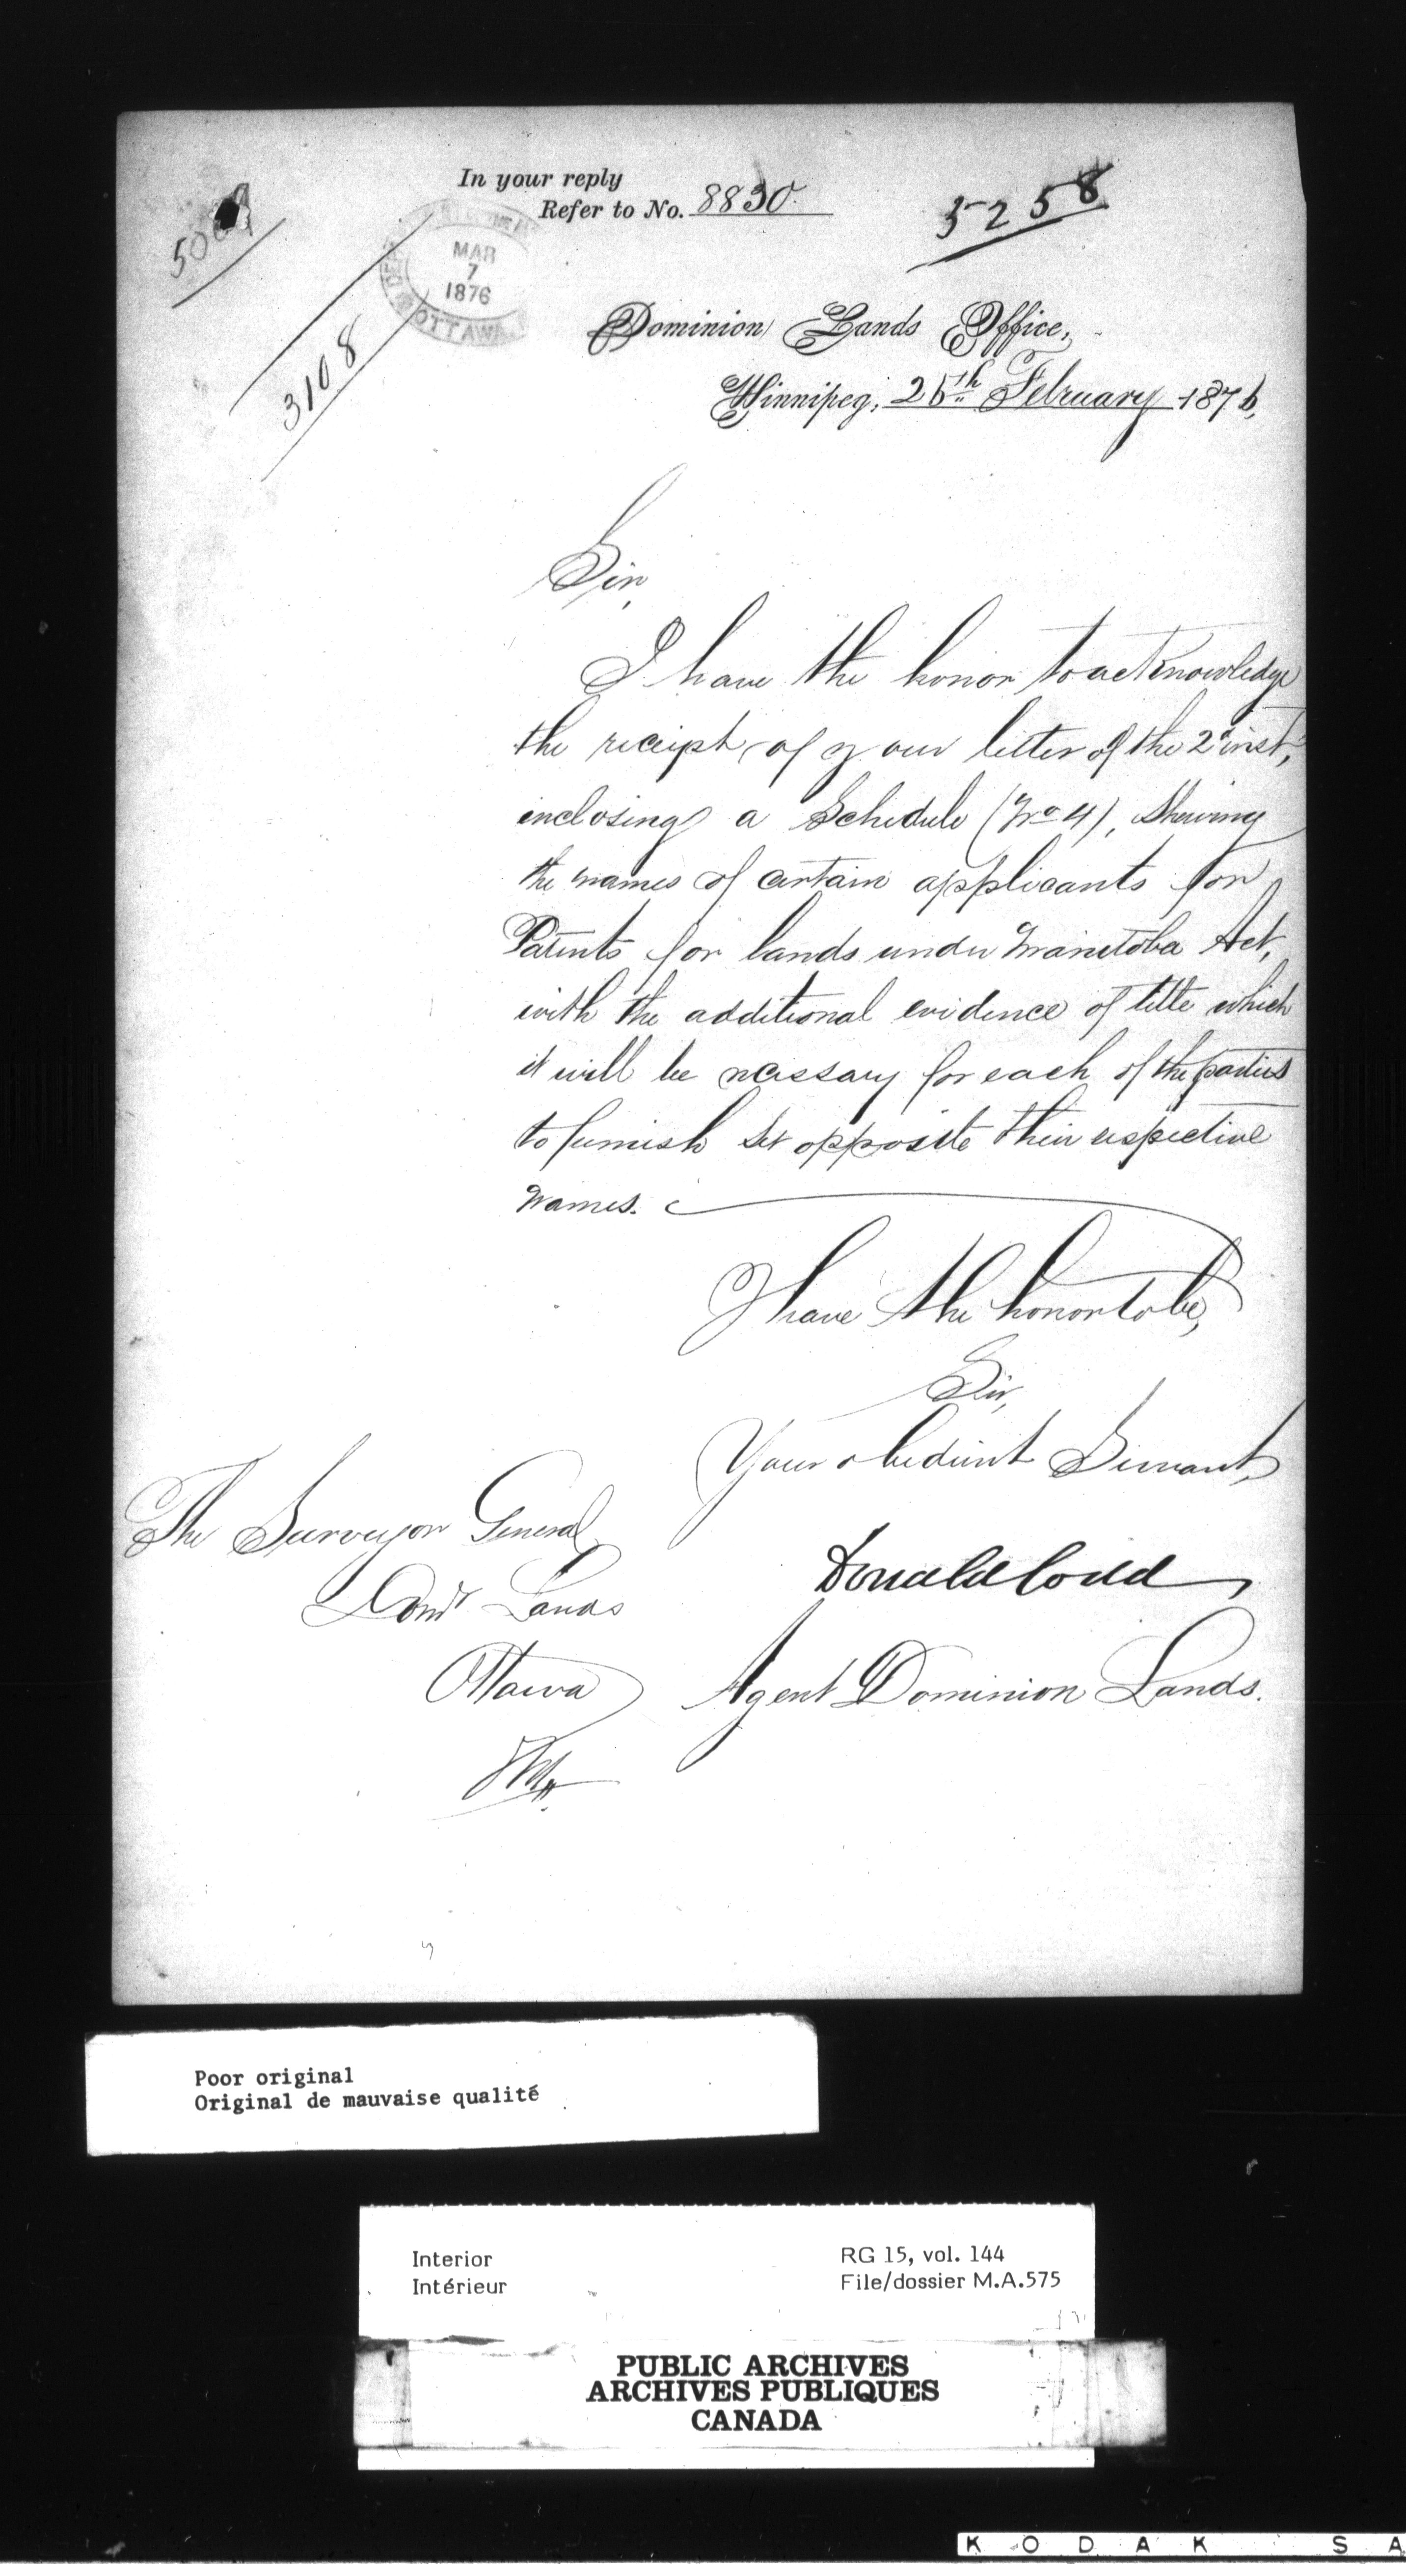 In your reply
Refer to No. 8830
5258
3108
MAR
7
1876
OTTAWA
Dominion Lands Office,
Winnipeg, 25th February 1876,
Sir,
I have the honor to acknowledge
the receipt of your letter of the 2d inst,
inclosing a Schedule (No 4), Shewing
the names of certain applicants for
Patents for lands under Manitoba Act,
with the additional evidence of title which
it will be necessary for each of the parties
to furnish set opposite their respective
names.
I have the honor to be,
Sir,
Your obedient Servant,
Donald Codd
Agent Dominion Lands.
The Surveyor General
Domn Lands
Ottawa
Poor original
Original de mauvaise qualité
Interior
Intérieur
RG 15, vol. 144
File/dossier M.A.575
PUBLIC ARCHIVES
ARCHIVES PUBLIQUES
CANADA
KODAK SA